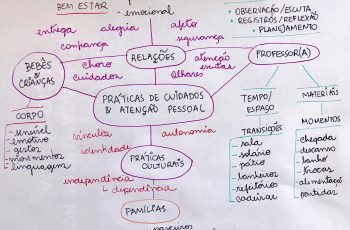 BEM ESTAR
- emocional
entrega alegria afeto
confiança segurança
• OBSERVAÇÃO/ESCUTA
• REGISTROS/REFLEXÃO
• PLANEJAMENTO
RELAÇÕES
PROFESSOR(A)
BEBÊS
&
CRIANÇAS
choro
cuidador
atenção
escutas
olhares
PRÁTICAS DE CUIDADOS
& ATENÇÃO PESSOAL
CORPO
- sensível
- emotivo
- gestos
- movimentos
- linguagem
TEMPO/
ESPAÇO
MATERIAIS
TRANSIÇÕES
- sala
- solário
- pátio
- banheiros
- refeitórios
MOMENTOS
- chegada
- descanso
- banho
- trocas
- alimentação
- partidas
vínculos
identidade
autonomia
PRÁTICAS
CULTURAIS
independência
↳ dependência
FAMÍLIAS